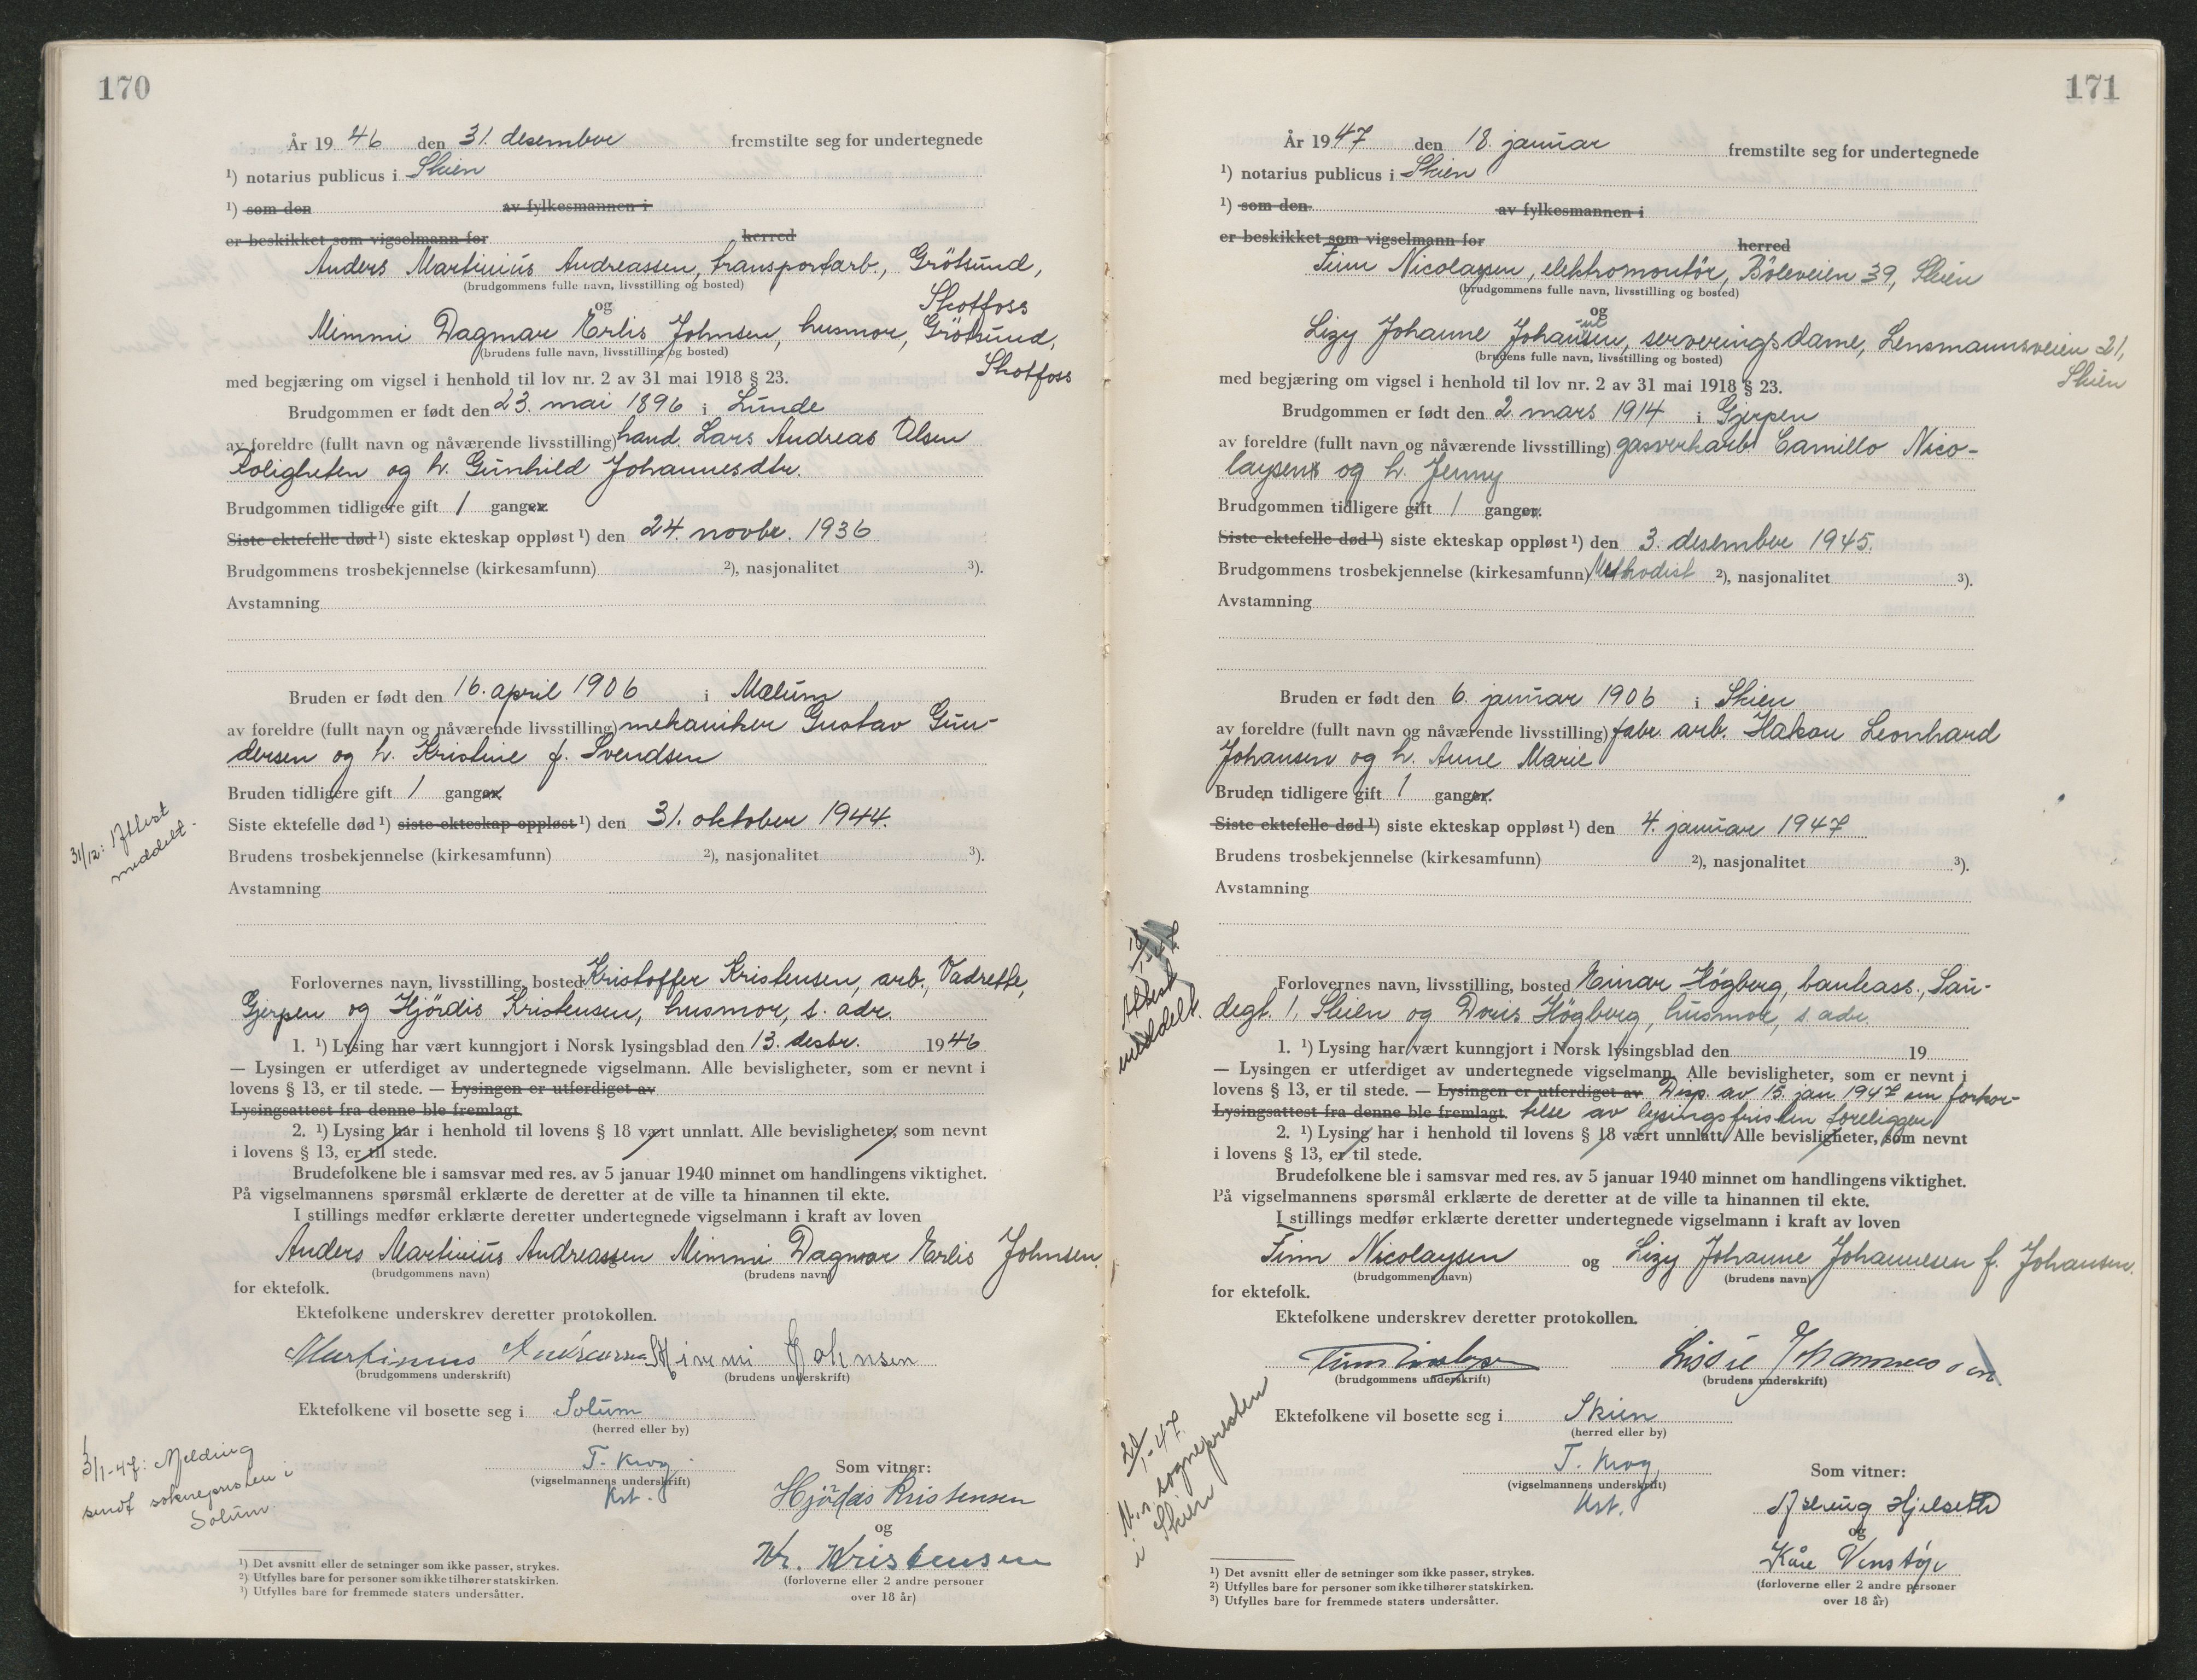 170
År 19 46 den 31. desember fremstilte seg for undertegnede
¹) notarius publicus i Skien
¹) som den av fylkesmannen i
er beskikket som vigselmann for herred
Anders Martinius Andreassen, transportarb., Grötsund,
(brudgommens fulle navn, livsstilling og bosted)
Skotfoss
og
Mimmi Dagmar Erlis Johnsen, husmor, Grötsund,
(brudens fulle navn, livsstilling og bosted)
Skotfoss
med begjæring om vigsel i henhold til lov nr. 2 av 31 mai 1918 § 23.
Brudgommen er født den 23. mai 1896 i Lunde
av foreldre (fullt navn og nåværende livsstilling) hand. Lars Andreas Olsen
Roligheten og h. Gunhild Johannesdtr.
Brudgommen tidligere gift 1 ganger.
Siste ektefelle død ¹) siste ekteskap oppløst ¹) den 24. novbr. 1936
Brudgommens trosbekjennelse (kirkesamfunn) ²), nasjonalitet ³).
Avstamning
Bruden er født den 16. april 1906 i Mælum
av foreldre (fullt navn og nåværende livsstilling) mekaniker Gustav Gun-
dersen og h. Kristine f. Svendsen
Bruden tidligere gift 1 ganger
Siste ektefelle død ¹) siste ekteskap oppløst ¹) den 31. oktober 1944.
Brudens trosbekjennelse (kirkesamfunn) ²), nasjonalitet ³).
Avstamning
31/12: Attest
meddelt.
Forlovernes navn, livsstilling, bosted Kristoffer Kristensen, arb., Vadrette,
Gjerpen og Hjördis Kristensen, husmor, s. adr.
1. ¹) Lysing har vært kunngjort i Norsk lysingsblad den 13. desbr. 1946
— Lysingen er utferdiget av undertegnede vigselmann. Alle bevisligheter, som er nevnt i
lovens § 13, er til stede. — Lysingen er utferdiget av
Lysingsattest fra denne ble fremlagt
2. ¹) Lysing har i henhold til lovens § 18 vært unnlatt. Alle bevisligheter, som nevnt
i lovens § 13, er til stede.
Brudefolkene ble i samsvar med res. av 5 januar 1940 minnet om handlingens viktighet.
På vigselmannens spørsmål erklærte de deretter at de ville ta hinannen til ekte.
I stillings medfør erklærte deretter undertegnede vigselmann i kraft av loven
Anders Martinius Andreassen Mimmi Dagmar Erlis Johnsen.
(brudgommens navn) (brudens navn)
for ektefolk.
Ektefolkene underskrev deretter protokollen.
Martinius Andreassen Mimmi Johnsen
(brudgommens underskrift) (brudens underskrift)
Ektefolkene vil bosette seg i Solum
(herred eller by)
T. Krog
(vigselmannens underskrift)
Kst.
Som vitner:
Hjördis Kristensen
og
Kr. Kristensen
(forloverne eller 2 andre personer
over 18 år)
3/1-47: Melding
sendt sokneprosten i
Solum.
¹) Det avsnitt eller de setninger som ikke passer, strykes.
²) Utfylles bare for personer som ikke tilhører statskirken.
³) Utfylles bare for fremmede staters undersåtter.
171
År 1947 den 18. januar fremstilte seg for undertegnede
¹) notarius publicus i Skien
¹) som den av fylkesmannen i
er beskikket som vigselmann for herred
Finn Nicolaysen, elektromontör, Böleveien 39, Skien
(brudgommens fulle navn, livsstilling og bosted)
og
Lizy Johanne Johansen, serveringsdame, Lensmannsveien 21,
(brudens fulle navn, livsstilling og bosted)
Skien
med begjæring om vigsel i henhold til lov nr. 2 av 31 mai 1918 § 23.
Brudgommen er født den 2. mars 1914 i Gjerpen
av foreldre (fullt navn og nåværende livsstilling) gassverkarb. Camillo Nico-
laysen og h. Jenny
Brudgommen tidligere gift 1 ganger.
Siste ektefelle død ¹) siste ekteskap oppløst ¹) den 3. desember 1945.
Brudgommens trosbekjennelse (kirkesamfunn) Methodist ²), nasjonalitet ³).
Avstamning
Bruden er født den 6. januar 1906 i Skien
av foreldre (fullt navn og nåværende livsstilling) fabr. arb. Hakon Leonhard
Johansen og h. Anne Marie
Bruden tidligere gift 1 ganger.
Siste ektefelle død ¹) siste ekteskap oppløst ¹) den 4. januar 1947
Brudens trosbekjennelse (kirkesamfunn) ²), nasjonalitet ³).
Avstamning
Attest
meddelt.
Forlovernes navn, livsstilling, bosted Einar Högberg, bankass., Sau-
degt. 1, Skien og Doris Högberg, husmor, s. adr.
1. ¹) Lysing har vært kunngjort i Norsk lysingsblad den 19
— Lysingen er utferdiget av undertegnede vigselmann. Alle bevisligheter, som er nevnt i
lovens § 13, er til stede. — Lysingen er utferdiget av Disp. av 15. jan. 1947 om forkor-
Lysingsattest fra denne ble fremlagt. telse av lysingsfristen foreligger
2. ¹) Lysing har i henhold til lovens § 18 vært unnlatt. Alle bevisligheter, som nevnt
i lovens § 13, er til stede.
Brudefolkene ble i samsvar med res. av 5 januar 1940 minnet om handlingens viktighet.
På vigselmannens spørsmål erklærte de deretter at de ville ta hinannen til ekte.
I stillings medfør erklærte deretter undertegnede vigselmann i kraft av loven
Finn Nicolaysen og Lizy Johanne Johannesen f. Johansen.
(brudgommens navn) (brudens navn)
for ektefolk.
Ektefolkene underskrev deretter protokollen.
Finn Nicolaysen Lissie Johannessen
(brudgommens underskrift) (brudens underskrift)
Ektefolkene vil bosette seg i Skien
(herred eller by)
T. Krog
(vigselmannens underskrift)
Kst.
Som vitner:
Hjelseth
og
Kåre Venstøp
(forloverne eller 2 andre personer
over 18 år)
20/1-47.
M. s. sognepresten
i Skien
¹) Det avsnitt eller de setninger som ikke passer, strykes.
²) Utfylles bare for personer som ikke tilhører statskirken.
³) Utfylles bare for fremmede staters undersåtter.